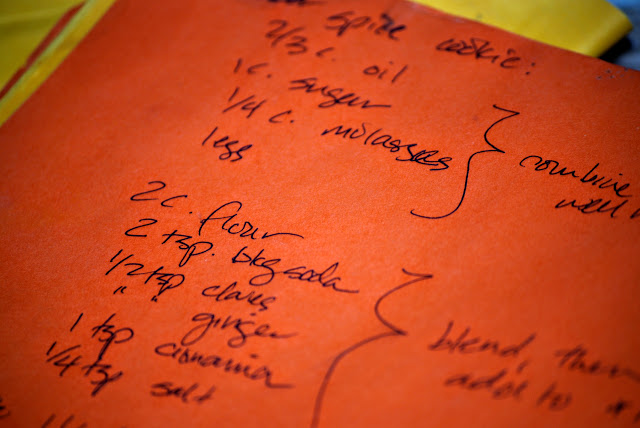 spice cookie:
2/3 c. oil
1 c. sugar
1/4 c. molasses
1 egg
combine
well
2 c. flour
2 tsp. bkg soda
1/2 tsp cloves
" " ginger
1 tsp cinnamin
1/4 tsp salt
blend, then
add to